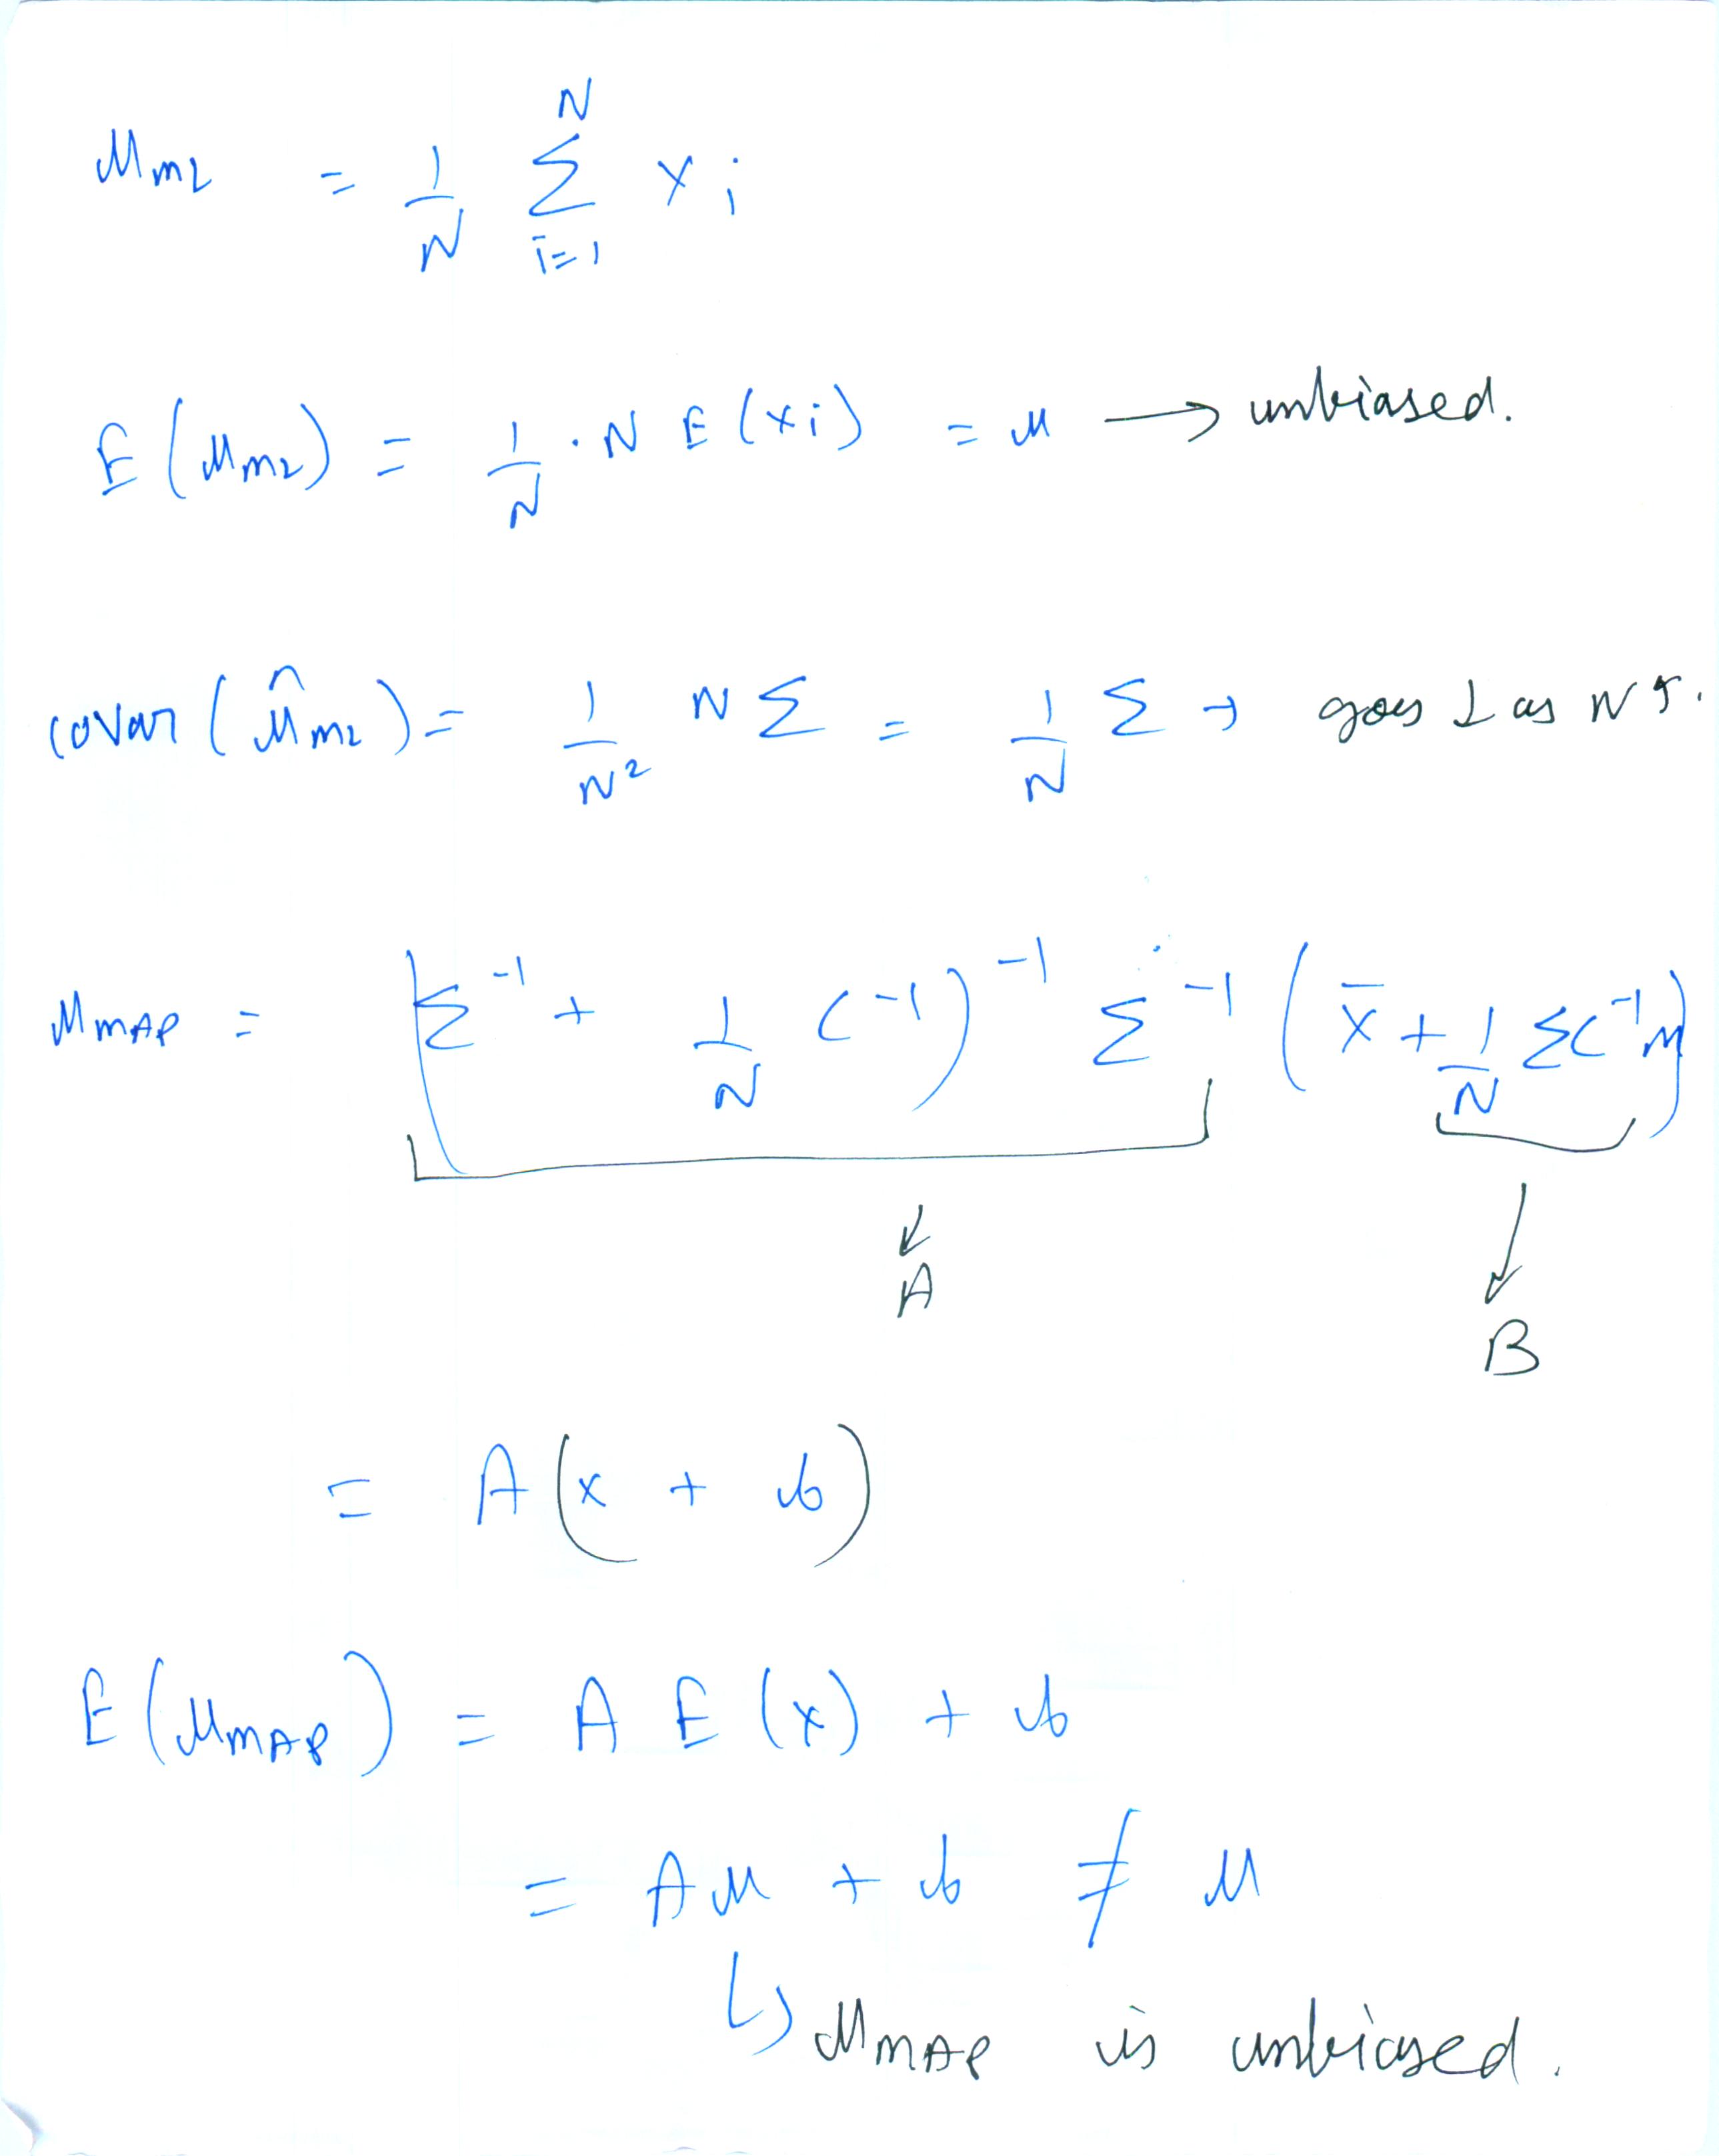 μ_ML = 1/N Σ_{i=1}^{N} x_i
E(μ_ML) = 1/N · N E(x_i) = μ → unbiased.
covar(μ̂_ML) = 1/N² N Σ = 1/N Σ → goes ↓ as N ↑.
μ_MAP = (Σ^{-1} + 1/N C^{-1})^{-1} Σ^{-1} (x̄ + 1/N ΣC^{-1}M)
A
B
= A(x + b)
E(μ_MAP) = A E(x) + b
= Aμ + b ≠ μ
↳ μ_MAP is unbiased.